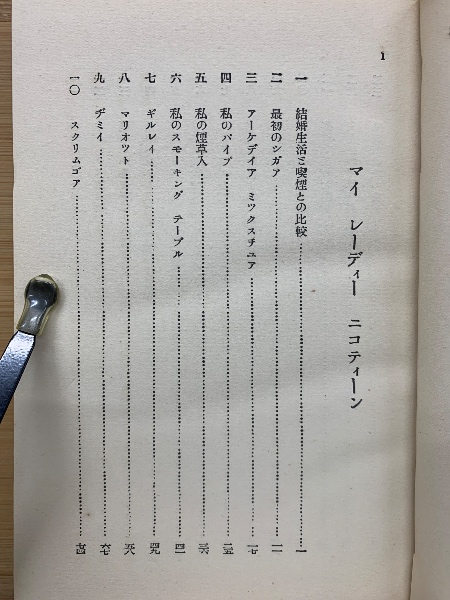 1
マイ レーディー ニコティーン
一 結婚生活と喫煙との比較……一
二 最初のシガア……一一
三 アーケデイア ミツクスチユア……一七
四 私のパイプ……二五
五 私の煙草入……三六
六 私のスモーキング テーブル……四一
七 ギルレイ……四九
八 マリオツト……五六
九 ヂミイ……六七
一〇 スクリムゴア……七四